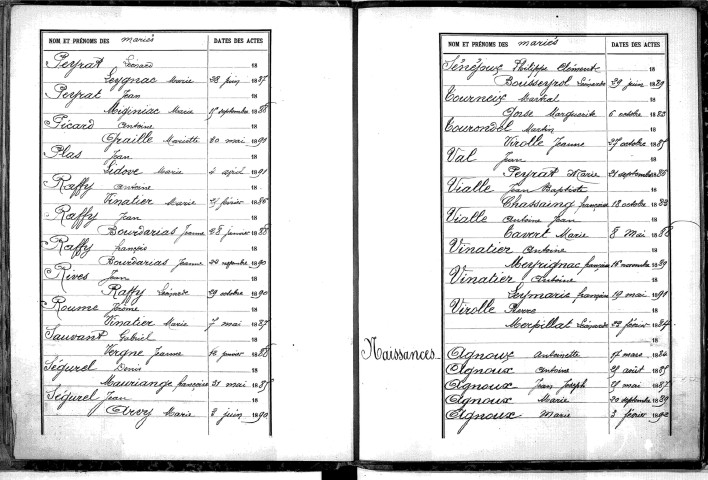 NOM ET PRÉNOMS DES mariés DATES DES ACTES
Peyrat Léonard 18
Leygnac Marie 28 juin 1887
Peyrat Jean 18
Miginiac Marie 15 septembre 1886
Picard Antoine 18
Graille Mariette 20 mai 1891
Plas Jean 18
Lidove Marie 4 avril 1891
Raffy Antoine 18
Vinatier Marie 21 février 1886
Raffy Jean 18
Bourdarias Jeanne 28 janvier 1888
Raffy François 18
Bourdarias Jeanne 24 novembre 1890
Rives Jean 18
Raffy Léonarde 29 octobre 1890
Roume Jérôme 18
Vinatier Marie 7 mai 1887
Sauvant Gabriel 18
Vergne Jeanne 16 janvier 1886
Ségurel Denis 18
Mauriange françoise 31 mai 1885
Ségurel Jean 18
Arvy Marie 2 juin 1890
NOM ET PRÉNOMS DES mariés DATES DES ACTES
Sénéjoux Philippe Clément 18
Bousseyrol Léonarde 29 juin 1889
Tourneix Martial 18
Gorse Marguerite 6 octobre 1883
Tourondel Martin 18
Virolle Jeanne 27 octobre 1885
Val Jean 18
Peyrat Marie 21 septembre 1886
Vialle Jean Baptiste 18
Chassaing françoise 18 octobre 1888
Vialle Antoine Jean 18
Tavert Marie 8 Mai 1886
Vinatier Antoine 18
Meyrignac françoise 16 novembre 1889
Vinatier Antoine 18
Leymarie françoise 19 mai 1891
Virolle Pierre 18
Merpillat Léonarde 22 février 1884
Naissances
Agnoux Antoinette 17 mars 1884
Agnoux Antoine 29 août 1885
Agnoux Jean Joseph 9 mai 1887
Agnoux Marie 20 septembre 1889
Agnoux Marie 3 février 1892